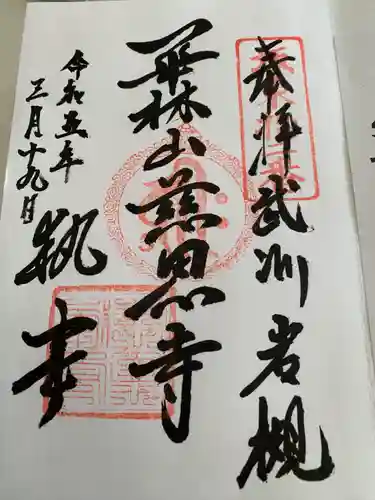 奉拝武州岩槻
華林山慈恩寺
令和五年
三月十九日
執事